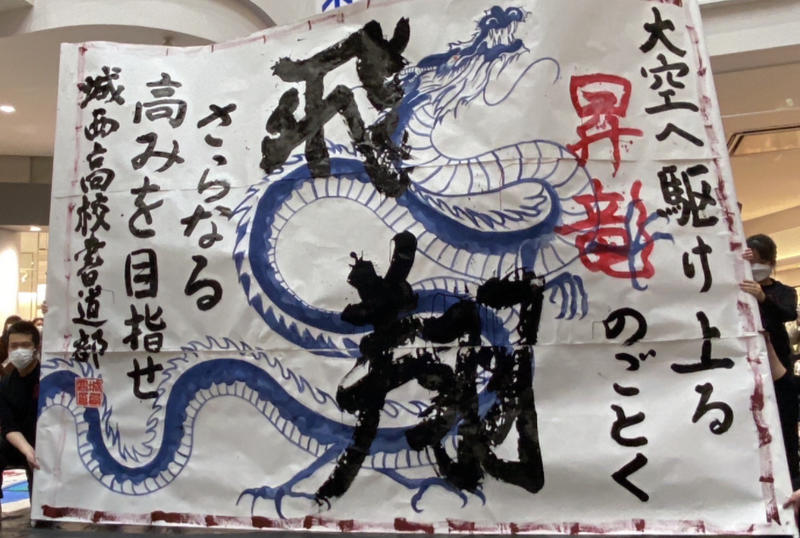 大空へ駆け上る
昇竜のごとく
飛翔
さらなる
高みを目指せ
城西高校書道部